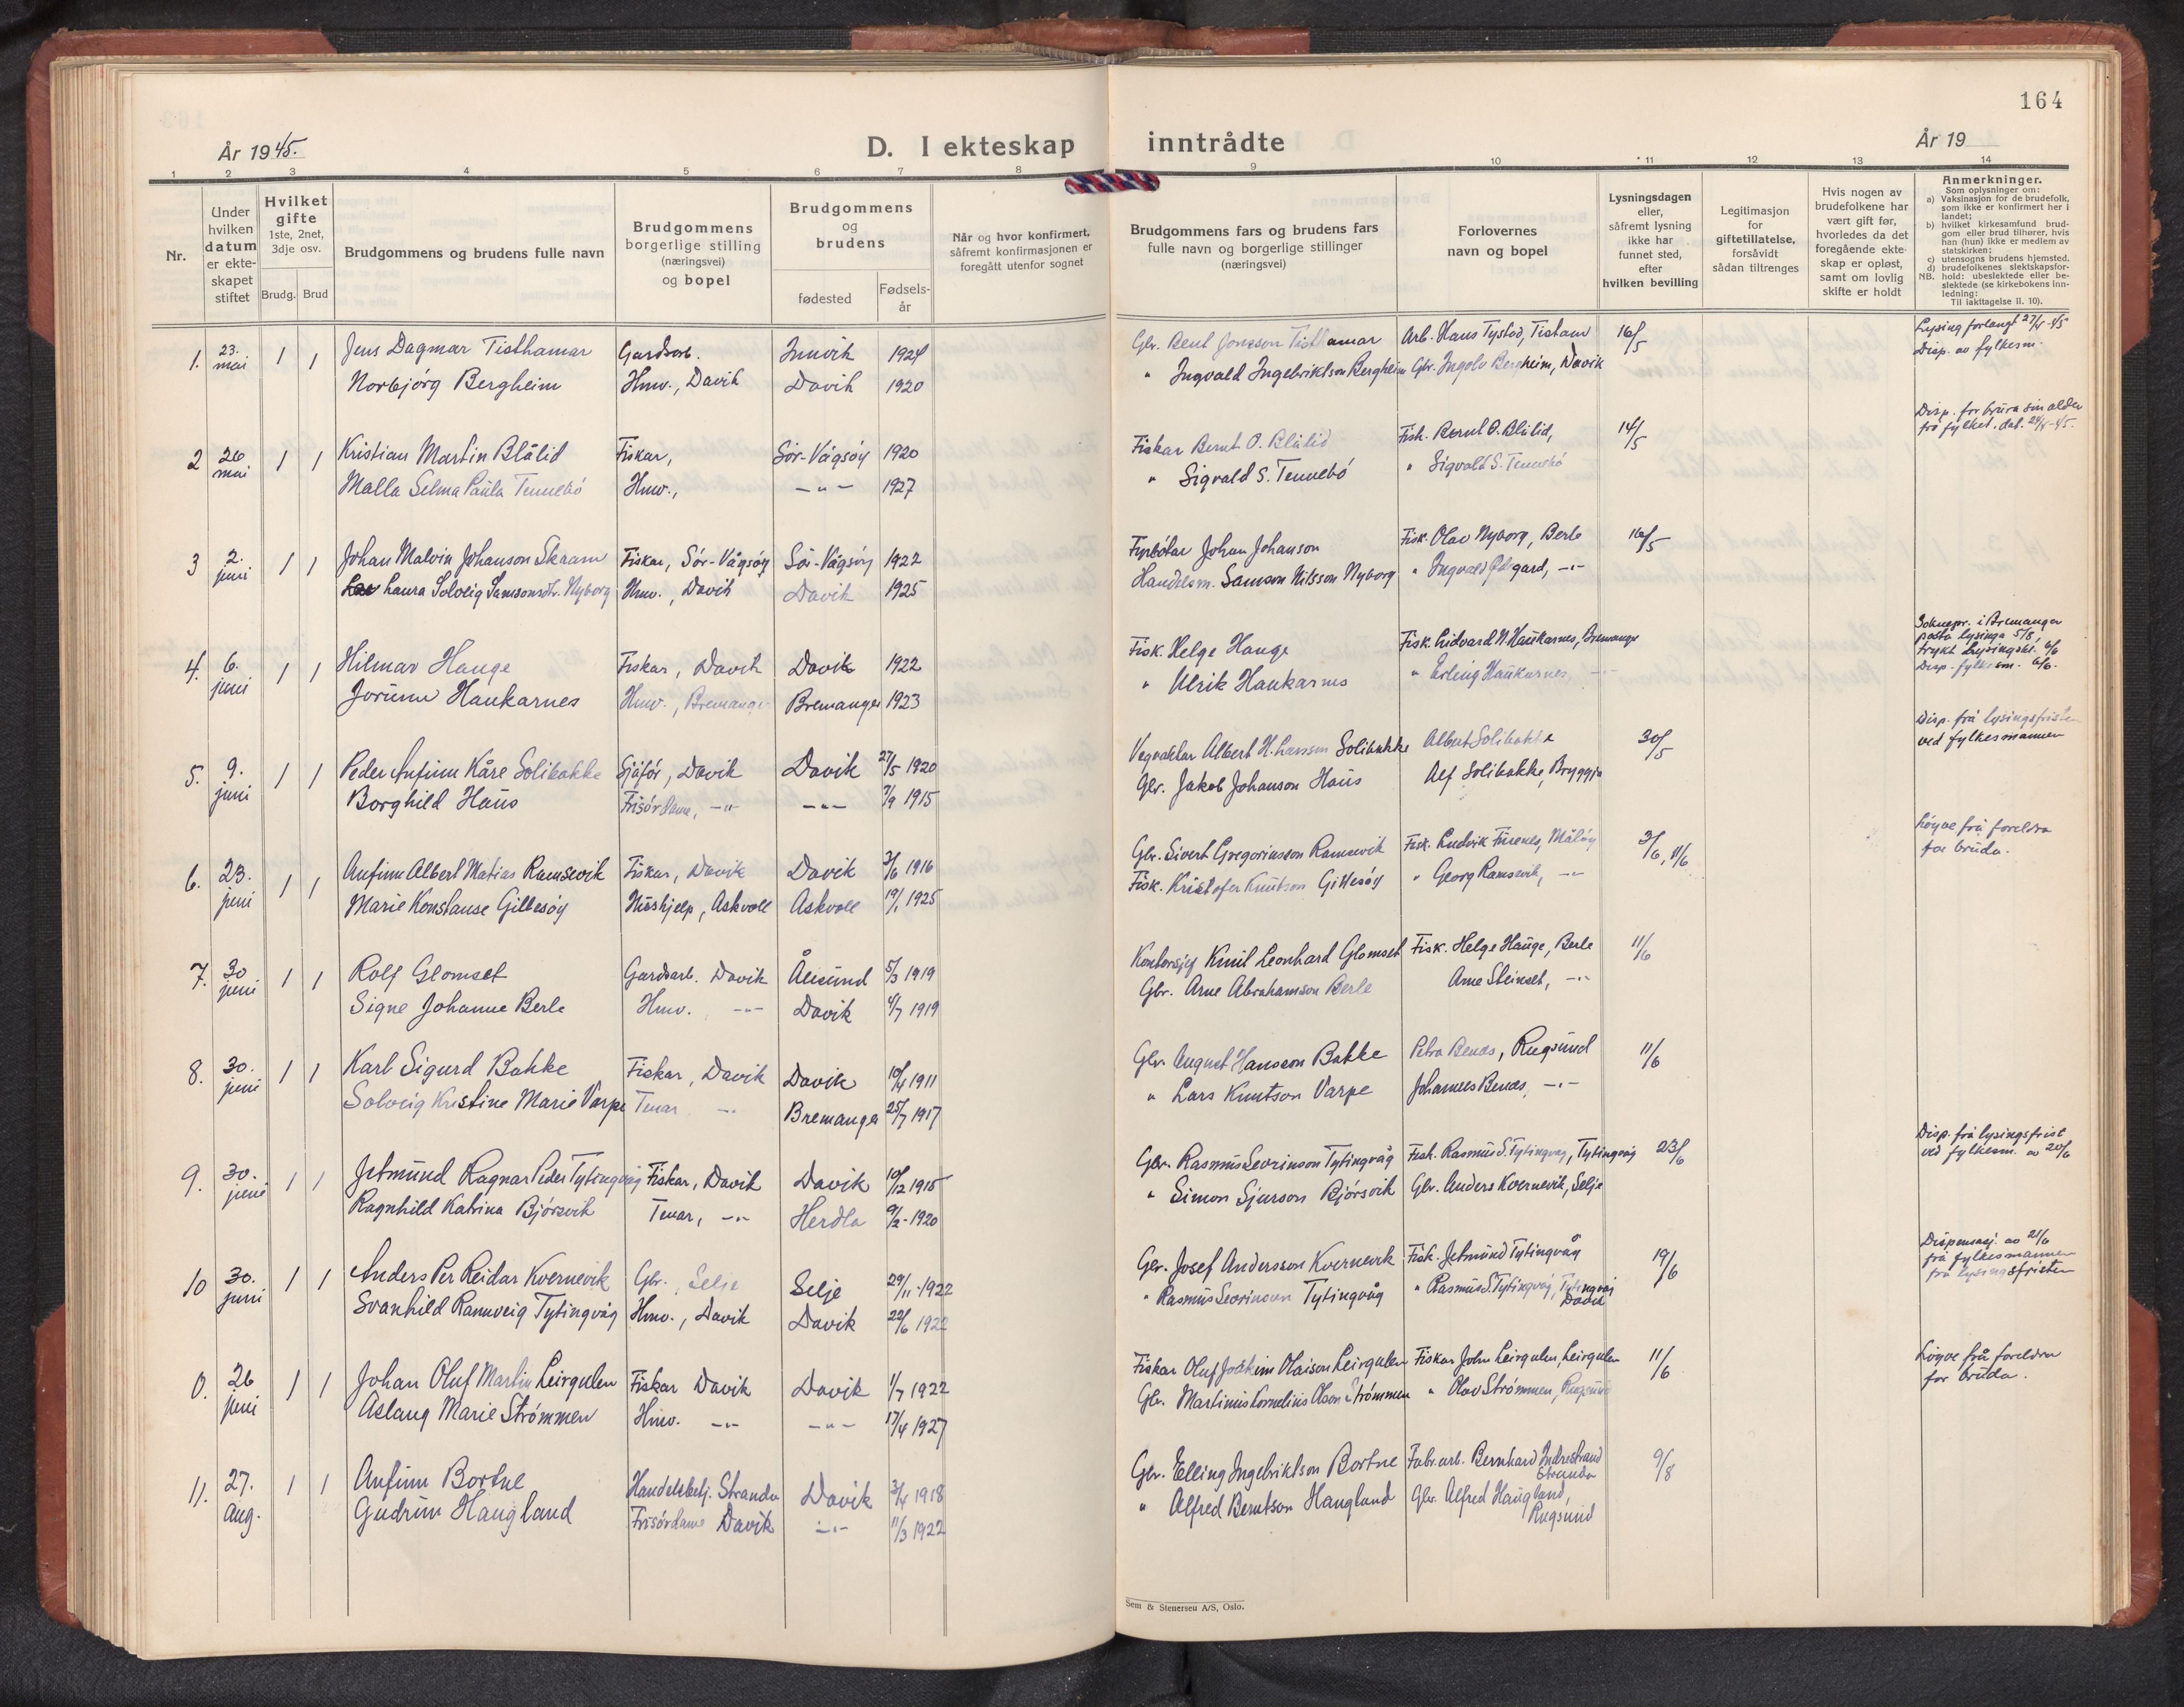 164
År 1945.
D. I ekteskap inntrådte
År 19
1 2 3 4 5 6 7 8 9 10 11 12 13 14
Nr.
Under hvilken datum er ekte-skapet stiftet
Hvilket gifte 1ste, 2net, 3dje osv.
Brudg. Brud
Brudgommens og brudens fulle navn
Brudgommens borgerlige stilling (næringsvei) og bopel
Brudgommens og brudens
fødested
Fødsels-år
Når og hvor konfirmert, såfremt konfirmasjonen er foregått utenfor sognet
Brudgommens fars og brudens fars fulle navn og borgerlige stillinger (næringsvei)
Forlovernes navn og bopel
Lysningsdagen eller, såfremt lysning ikke har funnet sted, efter hvilken bevilling
Legitimasjon for giftetillatelse, forsåvidt sådan tiltrenges
Hvis nogen av brudefolkene har vært gift før, hvorledes da det foregående ekte-skap er opløst, samt om lovlig skifte er holdt
Anmerkninger.
Som oplysninger om:
a) Vaksinasjon for de brudefolk, som ikke er konfirmert her i landet;
b) hvilket kirkesamfund brud-gom eller brud tilhører, hvis han (hun) ikke er medlem av statskirken;
c) utensogns brudens hjemsted.
d) brudefolkenes slektskapsfor-hold: ubeslektede eller be-slektede (se kirkebokens inn-ledning:
NB. Til iakttagelse II. 10).
1. 23. mai 1 1 Jens Dagmar Tisthamar Gardsarb. Innvik 1924 Gbr. Bent Jonsson Tisthamar Arb. Hans Tystad, Tistam 16/5 Lysing forlangt 27/4-45
Norbjörg Bergheim Hmv., Davik Davik 1920 " Ingvald Ingebriktson Bergheim Gbr. Ingolv Bergheim, Davik Disp. av fylkesm.
2 26 mai 1 1 Kristian Martin Blålid Fiskar, Sör-Vågsöy 1920 Fiskar Bernt O. Blålid Fisk. Bernt O. Blålid, 14/5 Disp. for brura sin alder
Malla Selma Paula Tennebö Hmv., -"- 1927 " Sigvald S. Tennebö " Sigvald S. Tennebö frå fylket, dat. 24/4-45.
3 2. juni 1 1 Johan Malvin Johanson Skaarn Fiskar, Sör-Vågsöy Sör-Vågsöy 1922 Fyrbötar Johan Johanson Fisk. Olav Nyborg, Berle 16/5
Laura Solveig Samsonsdtr. Nyborg Hmv., Davik Davik 1925 Handelsm. Samson Nilsson Nyborg " Ingvald gard, -"-
4. 6. juni 1 1 Hilmar Hauge Fiskar, Davik Davik 1922 Fisk. Helge Hauge Fisk. Lidvard N. Haukarnes, Bremanger Soknepr. i Bremanger
Jorunn Haukarnes Hmv., Bremanger Bremanger 1923 " Ulrik Haukarnes " Erling Haukarnes, -"- lysinga 5/6, trykt Lysingsbl. 6/6
Disp. fylkesm. 6/6.
5. 9. juni 1 1 Peder Anfinn Kåre Solibakke Sjåför, Davik Davik 27/5 1920 Vegvaktar Albert H. Larsson Solibakke Albert Solibakke 30/5 Disp. frå lysingsfristen
Borghild Haus Frisördame, -"- -"- 7/9 1915 Gbr. Jakob Johanson Haus Alf Solibakke, Bryggja ved fylkesmannen
6. 23. juni 1 1 Anfinn Albert Matias Ramsevik Fiskar, Davik Davik 3/6 1916 Gbr. Sivert Gregoriusson Ramsevik Fisk. Ludvik Furenes, Måløy 3/6, 11/6 Løyve frå foreldra
Marie Konstanse Gillesöy Hushjelp, Askvoll Askvoll 19/1 1925 Fisk. Kristofer Knutson Gillesöy " Georg Ramsevik, -"- for bruda.
7. 30 juni 1 1 Rolf Glomset Gardsarb. Davik Ålesund 5/3 1919 Kontorsjef Knut Leonhard Glomset Fisk. Helge Hauge, Berle 11/6
Signe Johanne Berle Hmv. -"- Davik 4/7 1919 Gbr. Arne Abrahamson Berle Arne Steinset, -"-
8. 30. juni 1 1 Karl Sigurd Bakke Fiskar, Davik Davik 10/4 1911 Gbr. August Hansson Bakke Petra Benås, Rugsund 11/6
Solveig Kristine Marie Varpe Tenar -"- Bremanger 25/7 1917 " Lars Knutson Varpe Johannes Benås, -"-
9. 30. juni 1 1 Jetmund Ragnar Peder Tytingvåg Fiskar, Davik Davik 10/12 1915 Gbr. Rasmus Sevrinson Tytingvåg Fisk. Rasmus S. Tytingvåg, Tytingvåg 23/6 Disp. frå lysingsfrist
Ragnhild Katrina Bjørsvik Tenar, -"- Herdla 9/2-1920 " Simon Sjurson Bjørsvik Gbr. Anders Kvernevik, Selje ved fylkesm. av 20/6
10 30. juni 1 1 Anders Per Reidar Kvernevik Gbr., Selje Selje 29/11-1922 Gbr. Josef Andersson Kvernevik Fisk. Jetmund Tytingvåg 19/6 Dispensasj. av 21/6
Svanhild Rannveig Tytingvåg Hmv., Davik Davik 22/6 1922 " Rasmus Sevrinson Tytingvåg " Rasmus S. Tytingvåg, Tytingvåg Davik frå fylkesmannen
frå lysingsfristen
0. 26 juni 1 1 Johan Oluf Martin Leirgulen Fiskar Davik Davik 1/7 1922 Fiskar Oluf Joakim Olaison Leirgulen Fiskar John Leirgulen, Leirgulen 11/6 Løyve frå foreldra
Aslaug Marie Strömmen Hmv. -"- -"- 17/4 1927 Gbr. Martinus Kornelius Olson Strömmen " Olav Strömmen, Rugsund for bruda.
11. 27. aug. 1 1 Anfinn Bortne Handelsbetj. Stranda Davik 3/4 1918 Gbr. Elling Ingebriktson Bortne Fabr.arb. Bernhard Indrestrand Stranda 9/8
Gudrun Haugland Frisördame Davik -"- 11/3 1922 " Alfred Berntson Haugland Gbr. Alfred Haugland, Rugsund
Sem & Stenersen A/S, Oslo.